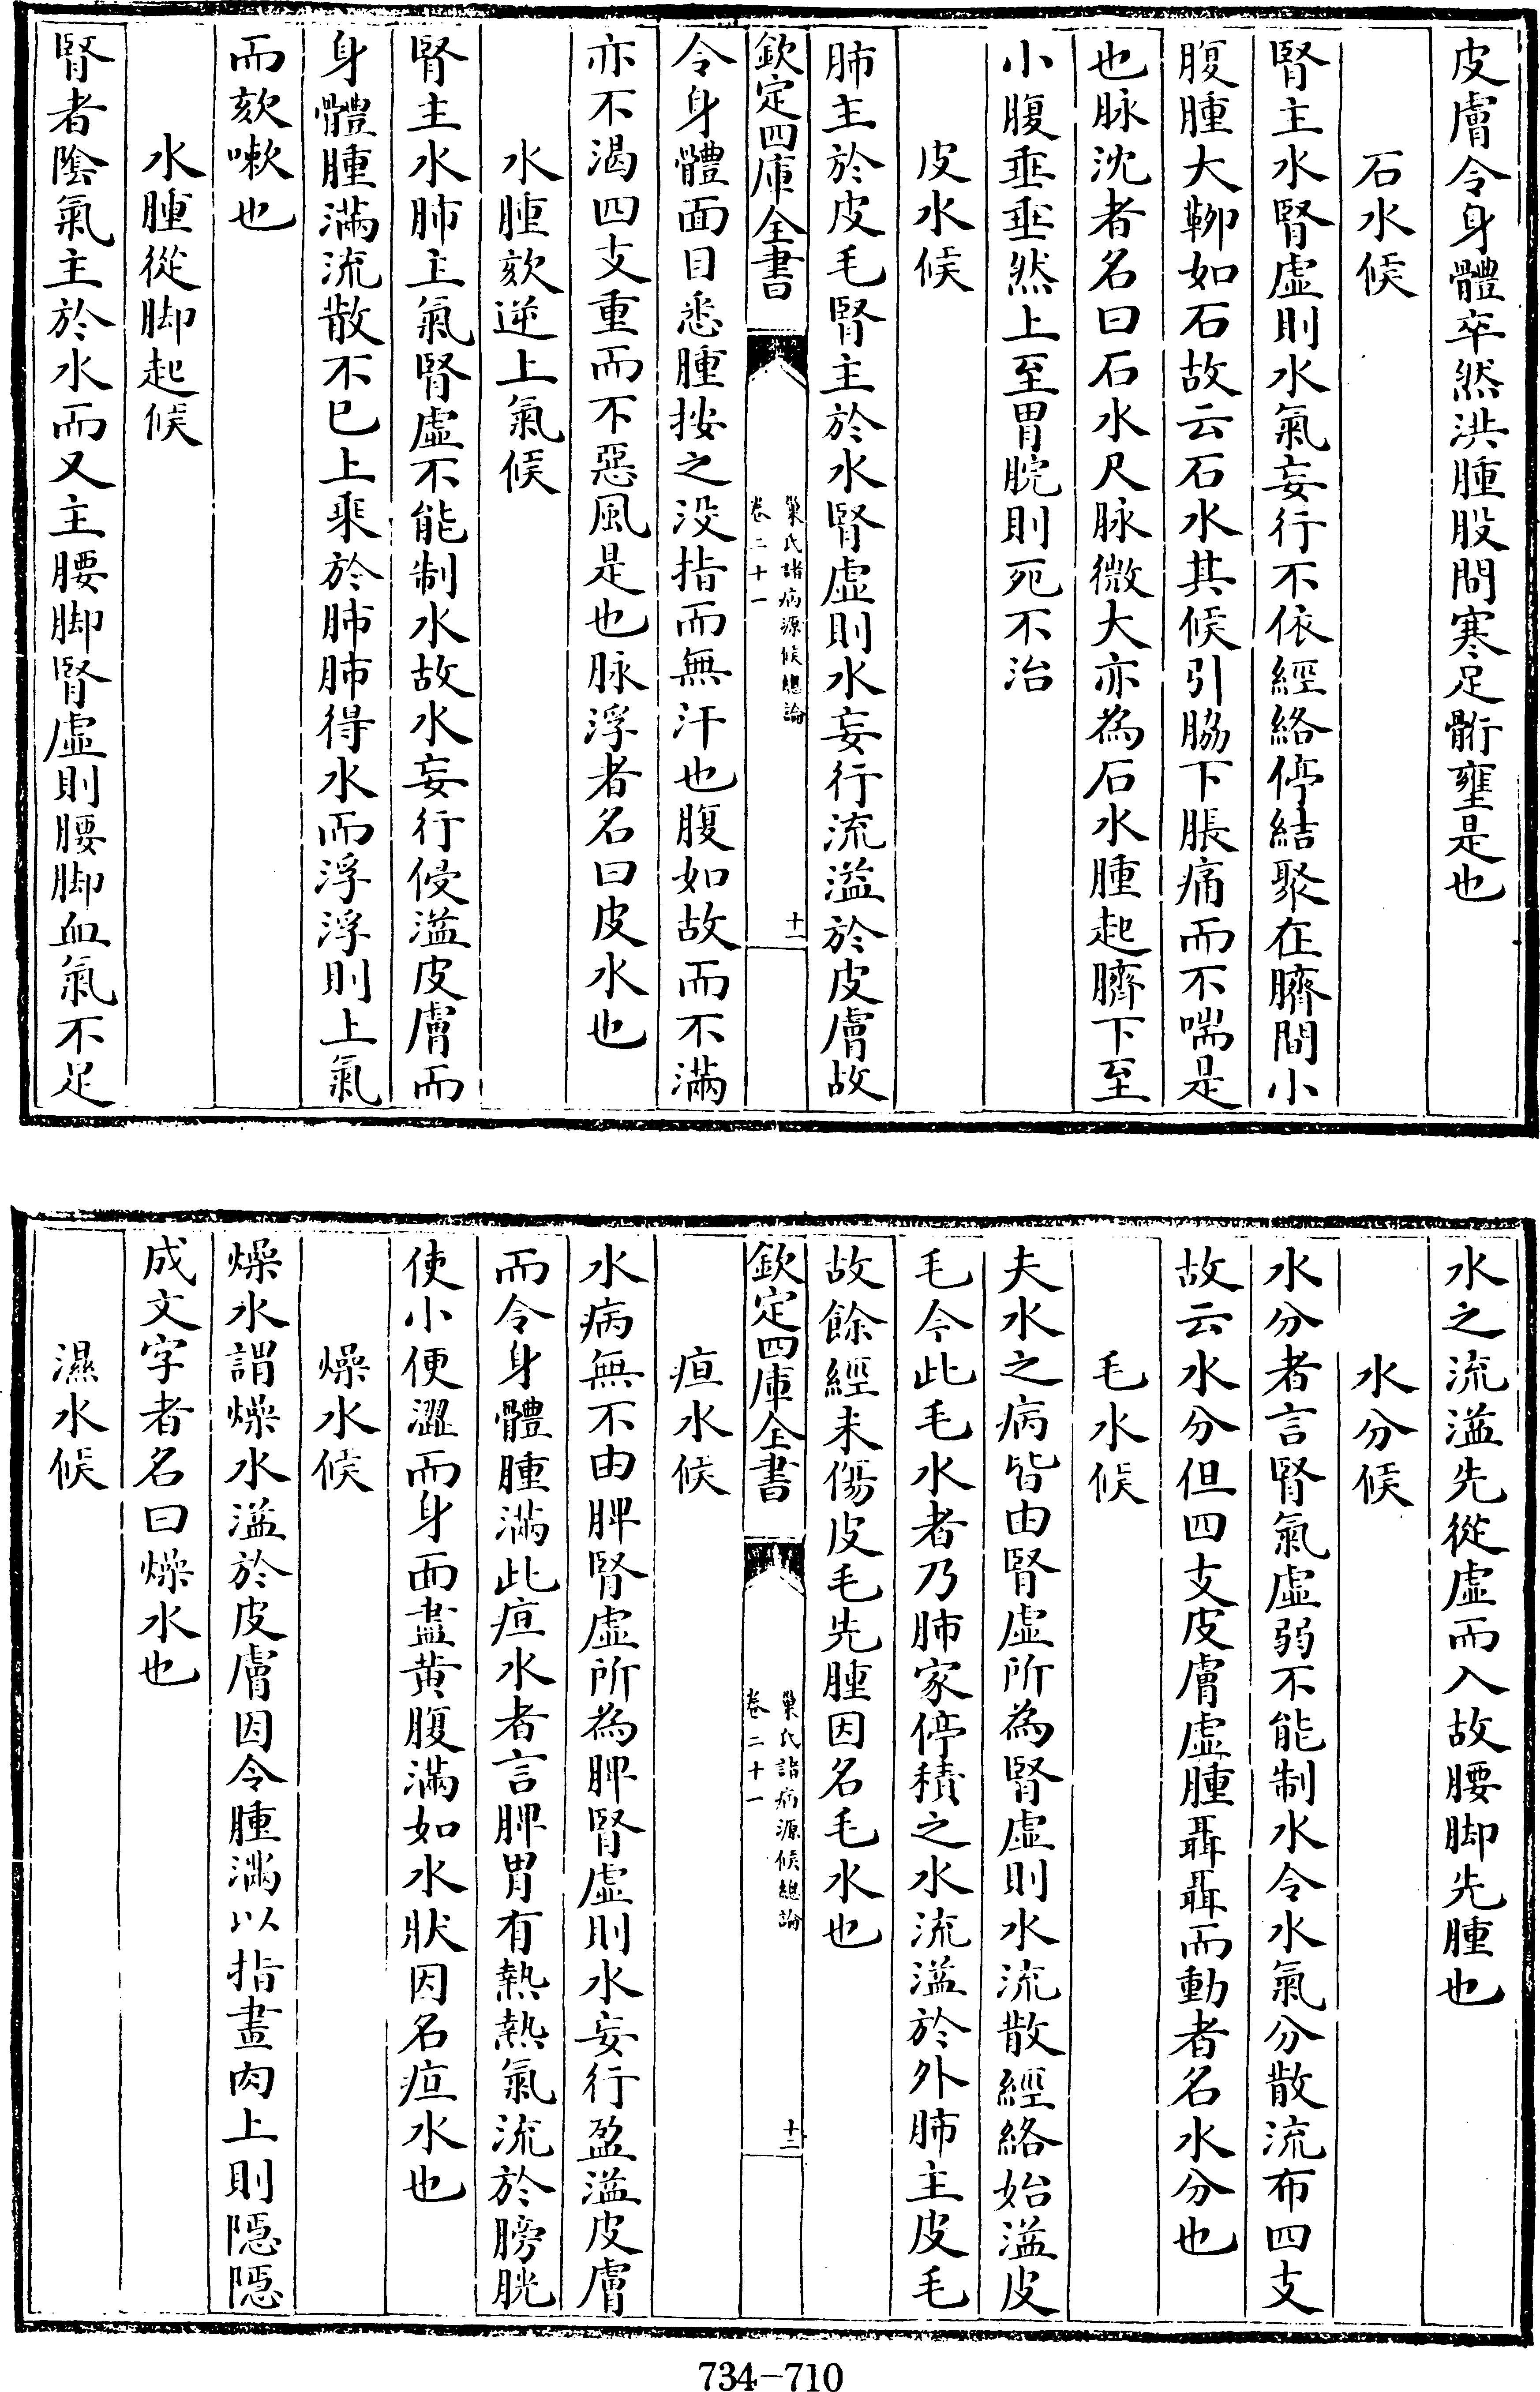 皮膚令身體卒然洪腫股間寒足䯒壅是也
石水候
腎主水腎虚則水氣妄行不依經絡停結聚在臍間小
腹腫大鞕如石故云石水其候引脇下脹痛而不喘是
也脉沈者名曰石水尺脉微大亦為石水腫起臍下至
小腹垂垂然上至胃脘則死不治
皮水候
肺主於皮毛腎主於水腎虚則水妄行流溢於皮膚故
欽定四庫全書
巢氏諸病源候總論
卷二十一
十一
令身體面目悉腫按之沒指而無汗也腹如故而不滿
亦不渴四支重而不惡風是也脉浮者名曰皮水也
水腫欬逆上氣候
腎主水肺主氣腎虚不能制水故水妄行侵溢皮膚而
身體腫滿流散不已上乘於肺肺得水而浮浮則上氣
而欬嗽也
水腫從脚起候
腎者陰氣主於水而又主腰脚腎虚則腰脚血氣不足
水之流溢先從虚而入故腰脚先腫也
水分候
水分者言腎氣虚弱不能制水令水氣分散流布四支
故云水分但四支皮膚虚腫聶聶而動者名水分也
毛水候
夫水之病皆由腎虚所為腎虚則水流散經絡始溢皮
毛今此毛水者乃肺家停積之水流溢於外肺主皮毛
故餘經未傷皮毛先腫因名毛水也
欽定四庫全書
巢氏諸病源候總論
卷二十一
十二
疸水候
水病無不由脾腎虚所為脾腎虚則水妄行盈溢皮膚
而令身體腫滿此疸水者言脾胃有熱熱氣流於膀胱
使小便澀而身面盡黄腹滿如水狀因名疸水也
燥水候
燥水謂燥水溢於皮膚因令腫滿以指畫肉上則隱隱
成文字者名曰燥水也
濕水候
734-710